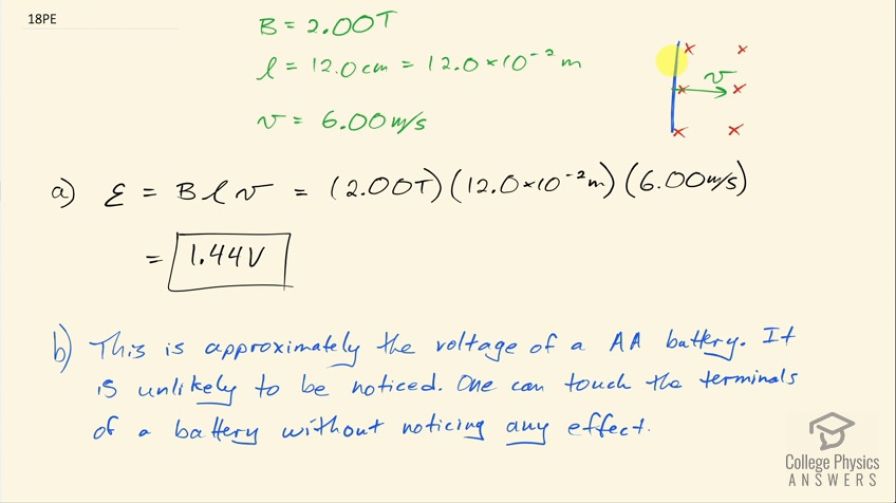 18PE
B = 2.00T
l = 12.0 cm = 12.0 × 10⁻² m
v = 6.00 m/s
× ×
v
× ×
× ×
a) ℰ = B l v = (2.00T)(12.0×10⁻²m)(6.00m/s)
= 1.44V
b) This is approximately the voltage of a AA battery. It
is unlikely to be noticed. One can touch the terminals
of a battery without noticing any effect.
College Physics
ANSWERS